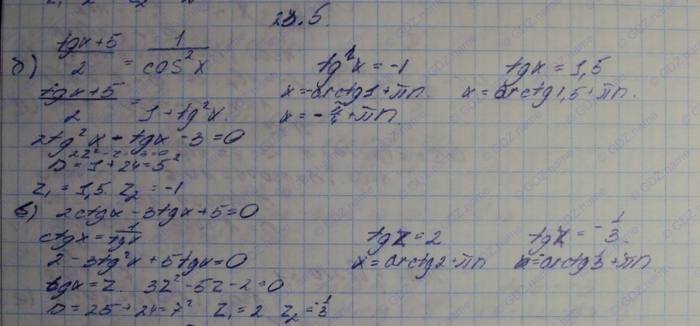 23.5.
б) (tgx+5)/2 = 1/cos²x
(tgx+5)/2 = 1+tg²x
2tg²x - tgx - 3 = 0
2z²-z-3=0
D = 1+24 = 5²
z₁ = 1,5 z₂ = -1
tgx = -1
x = -arctg1 + πn
x = -π/4 + πn
tgx = 1,5
x = arctg1,5 + πn.
в) 2ctgx - 3tgx + 5 = 0
ctgx = 1/tgx
2 - 3tg²x + 5tgx = 0
tgx = z. 3z² - 5z - 2 = 0
D = 25 + 24 = 7² z₁ = 2 z₂ = -1/3
tgx = 2
x = arctg2 + πn
tgx = -1/3.
© GDZ.name